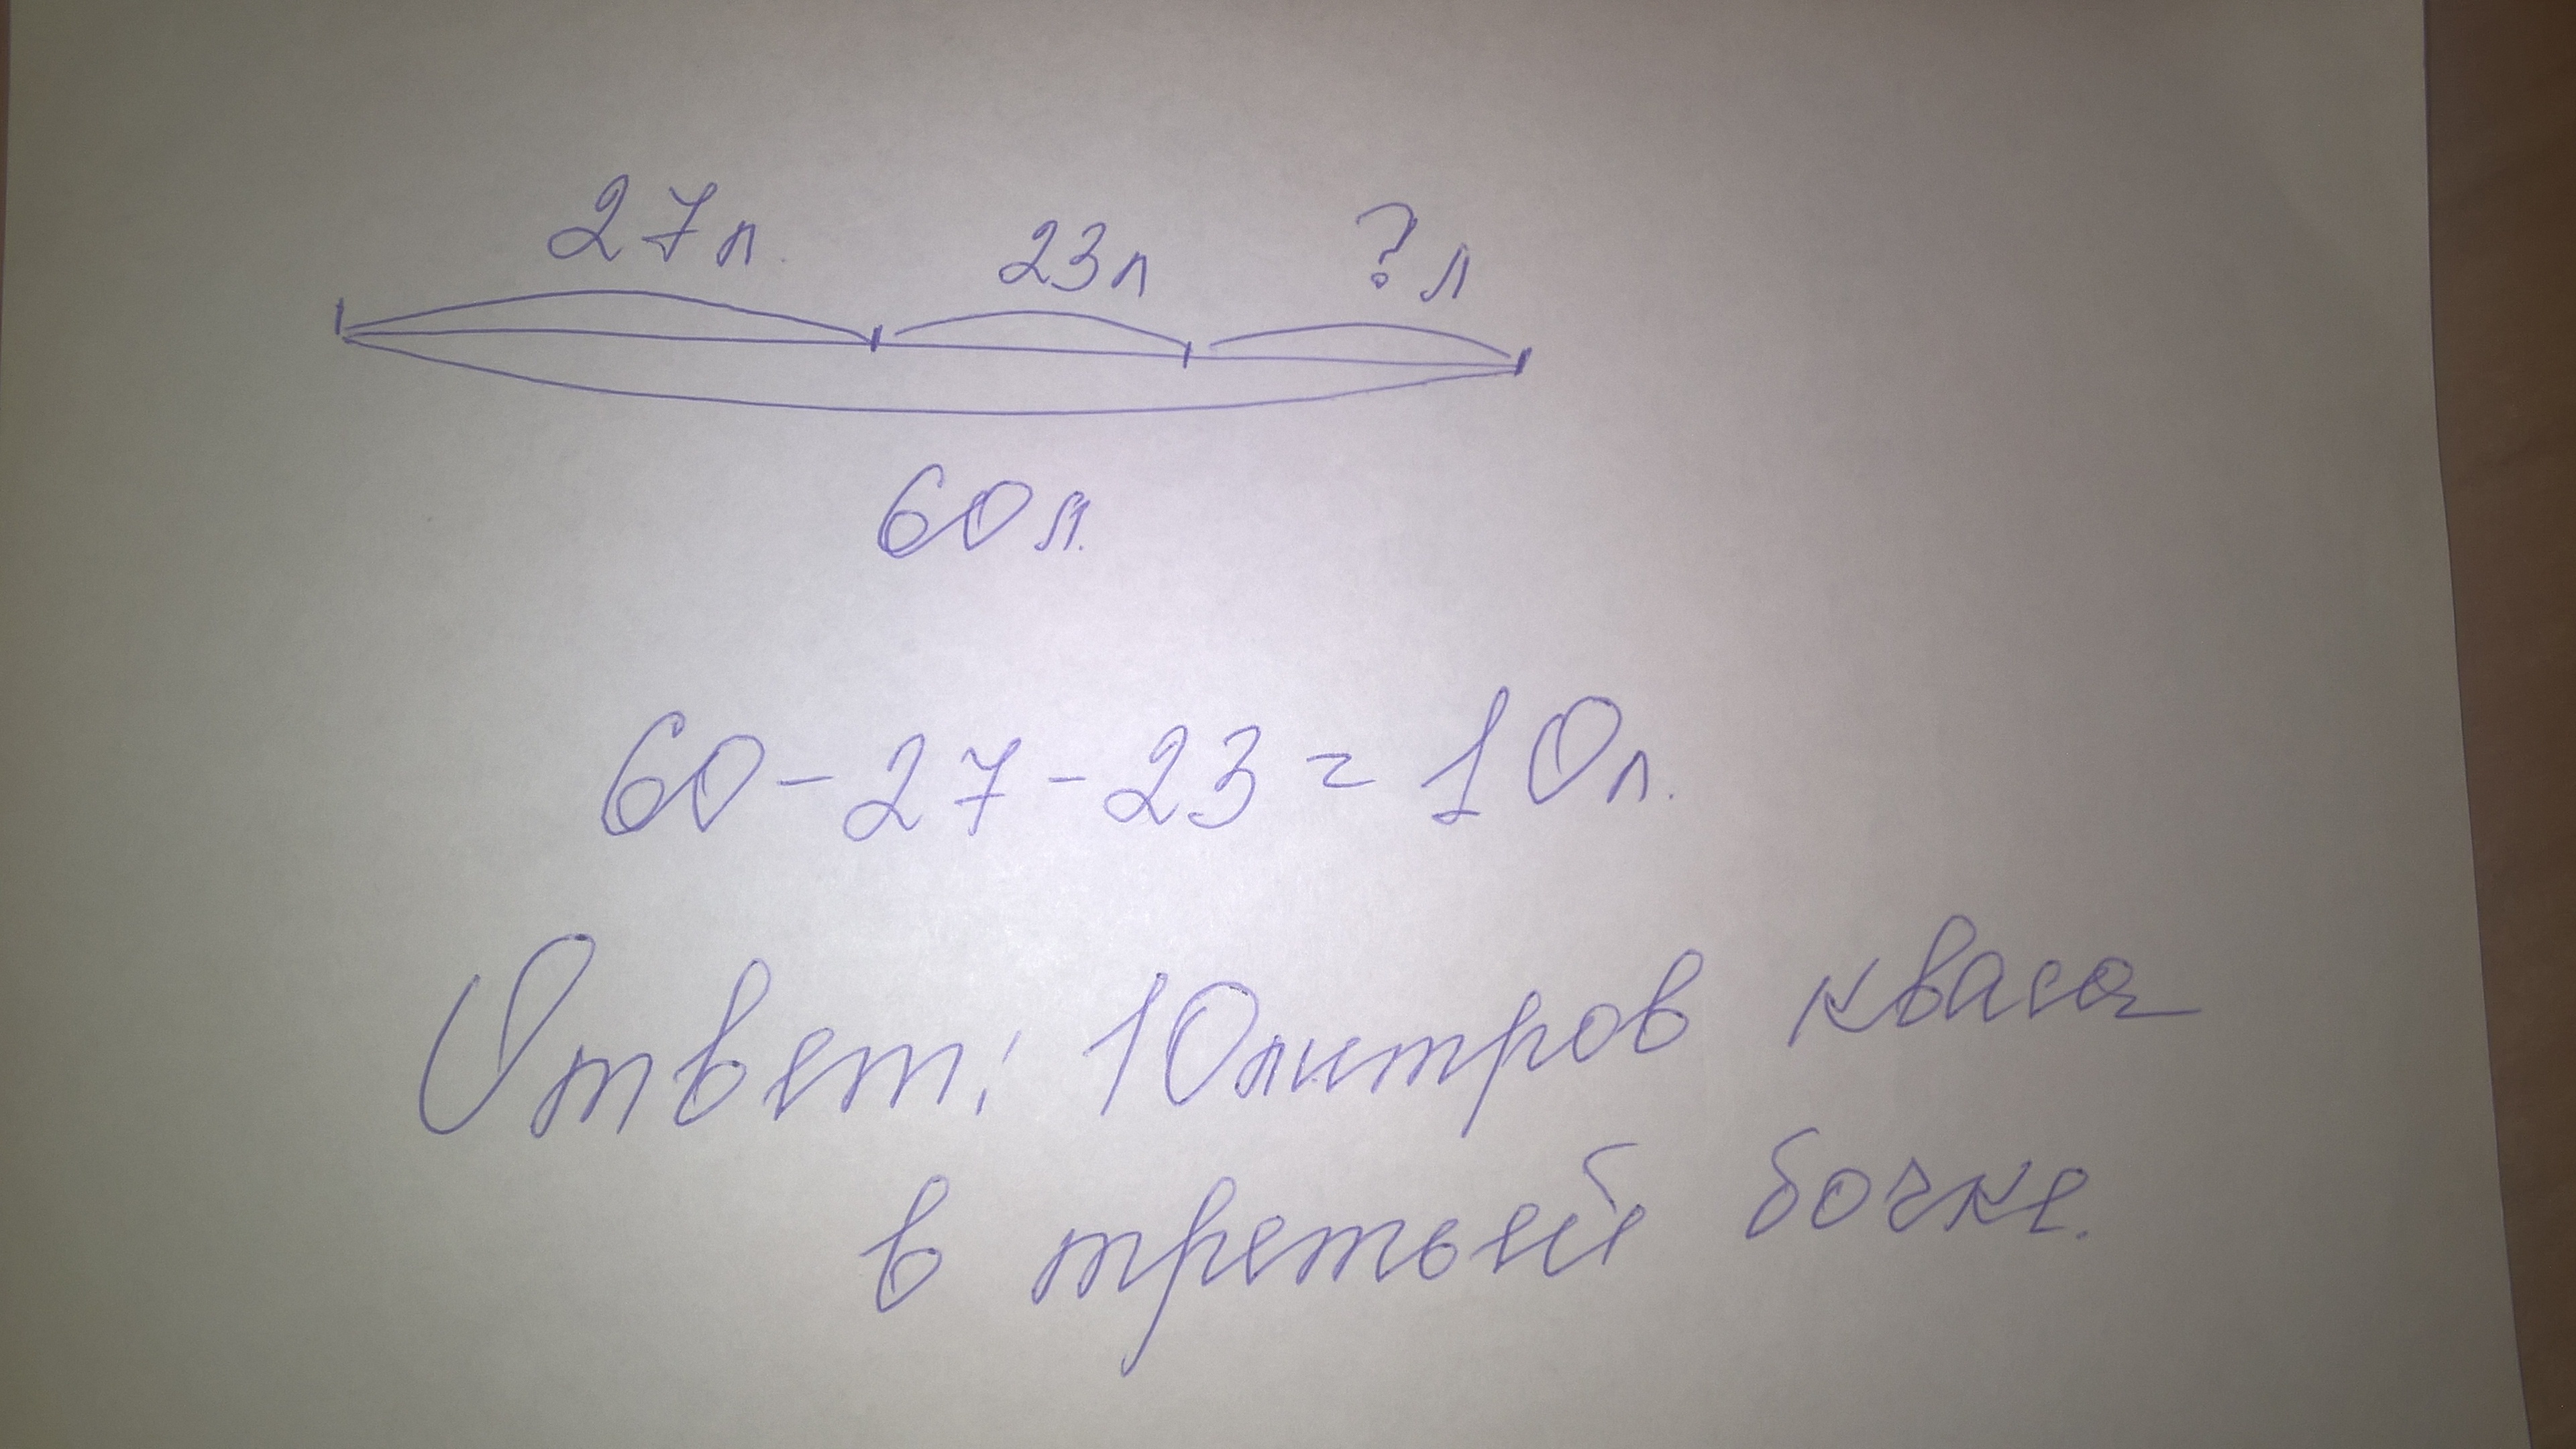 27л 23л ?л
60л.
60-27-23=10л.
Ответ: 10литров кваса
в третьей бочке.